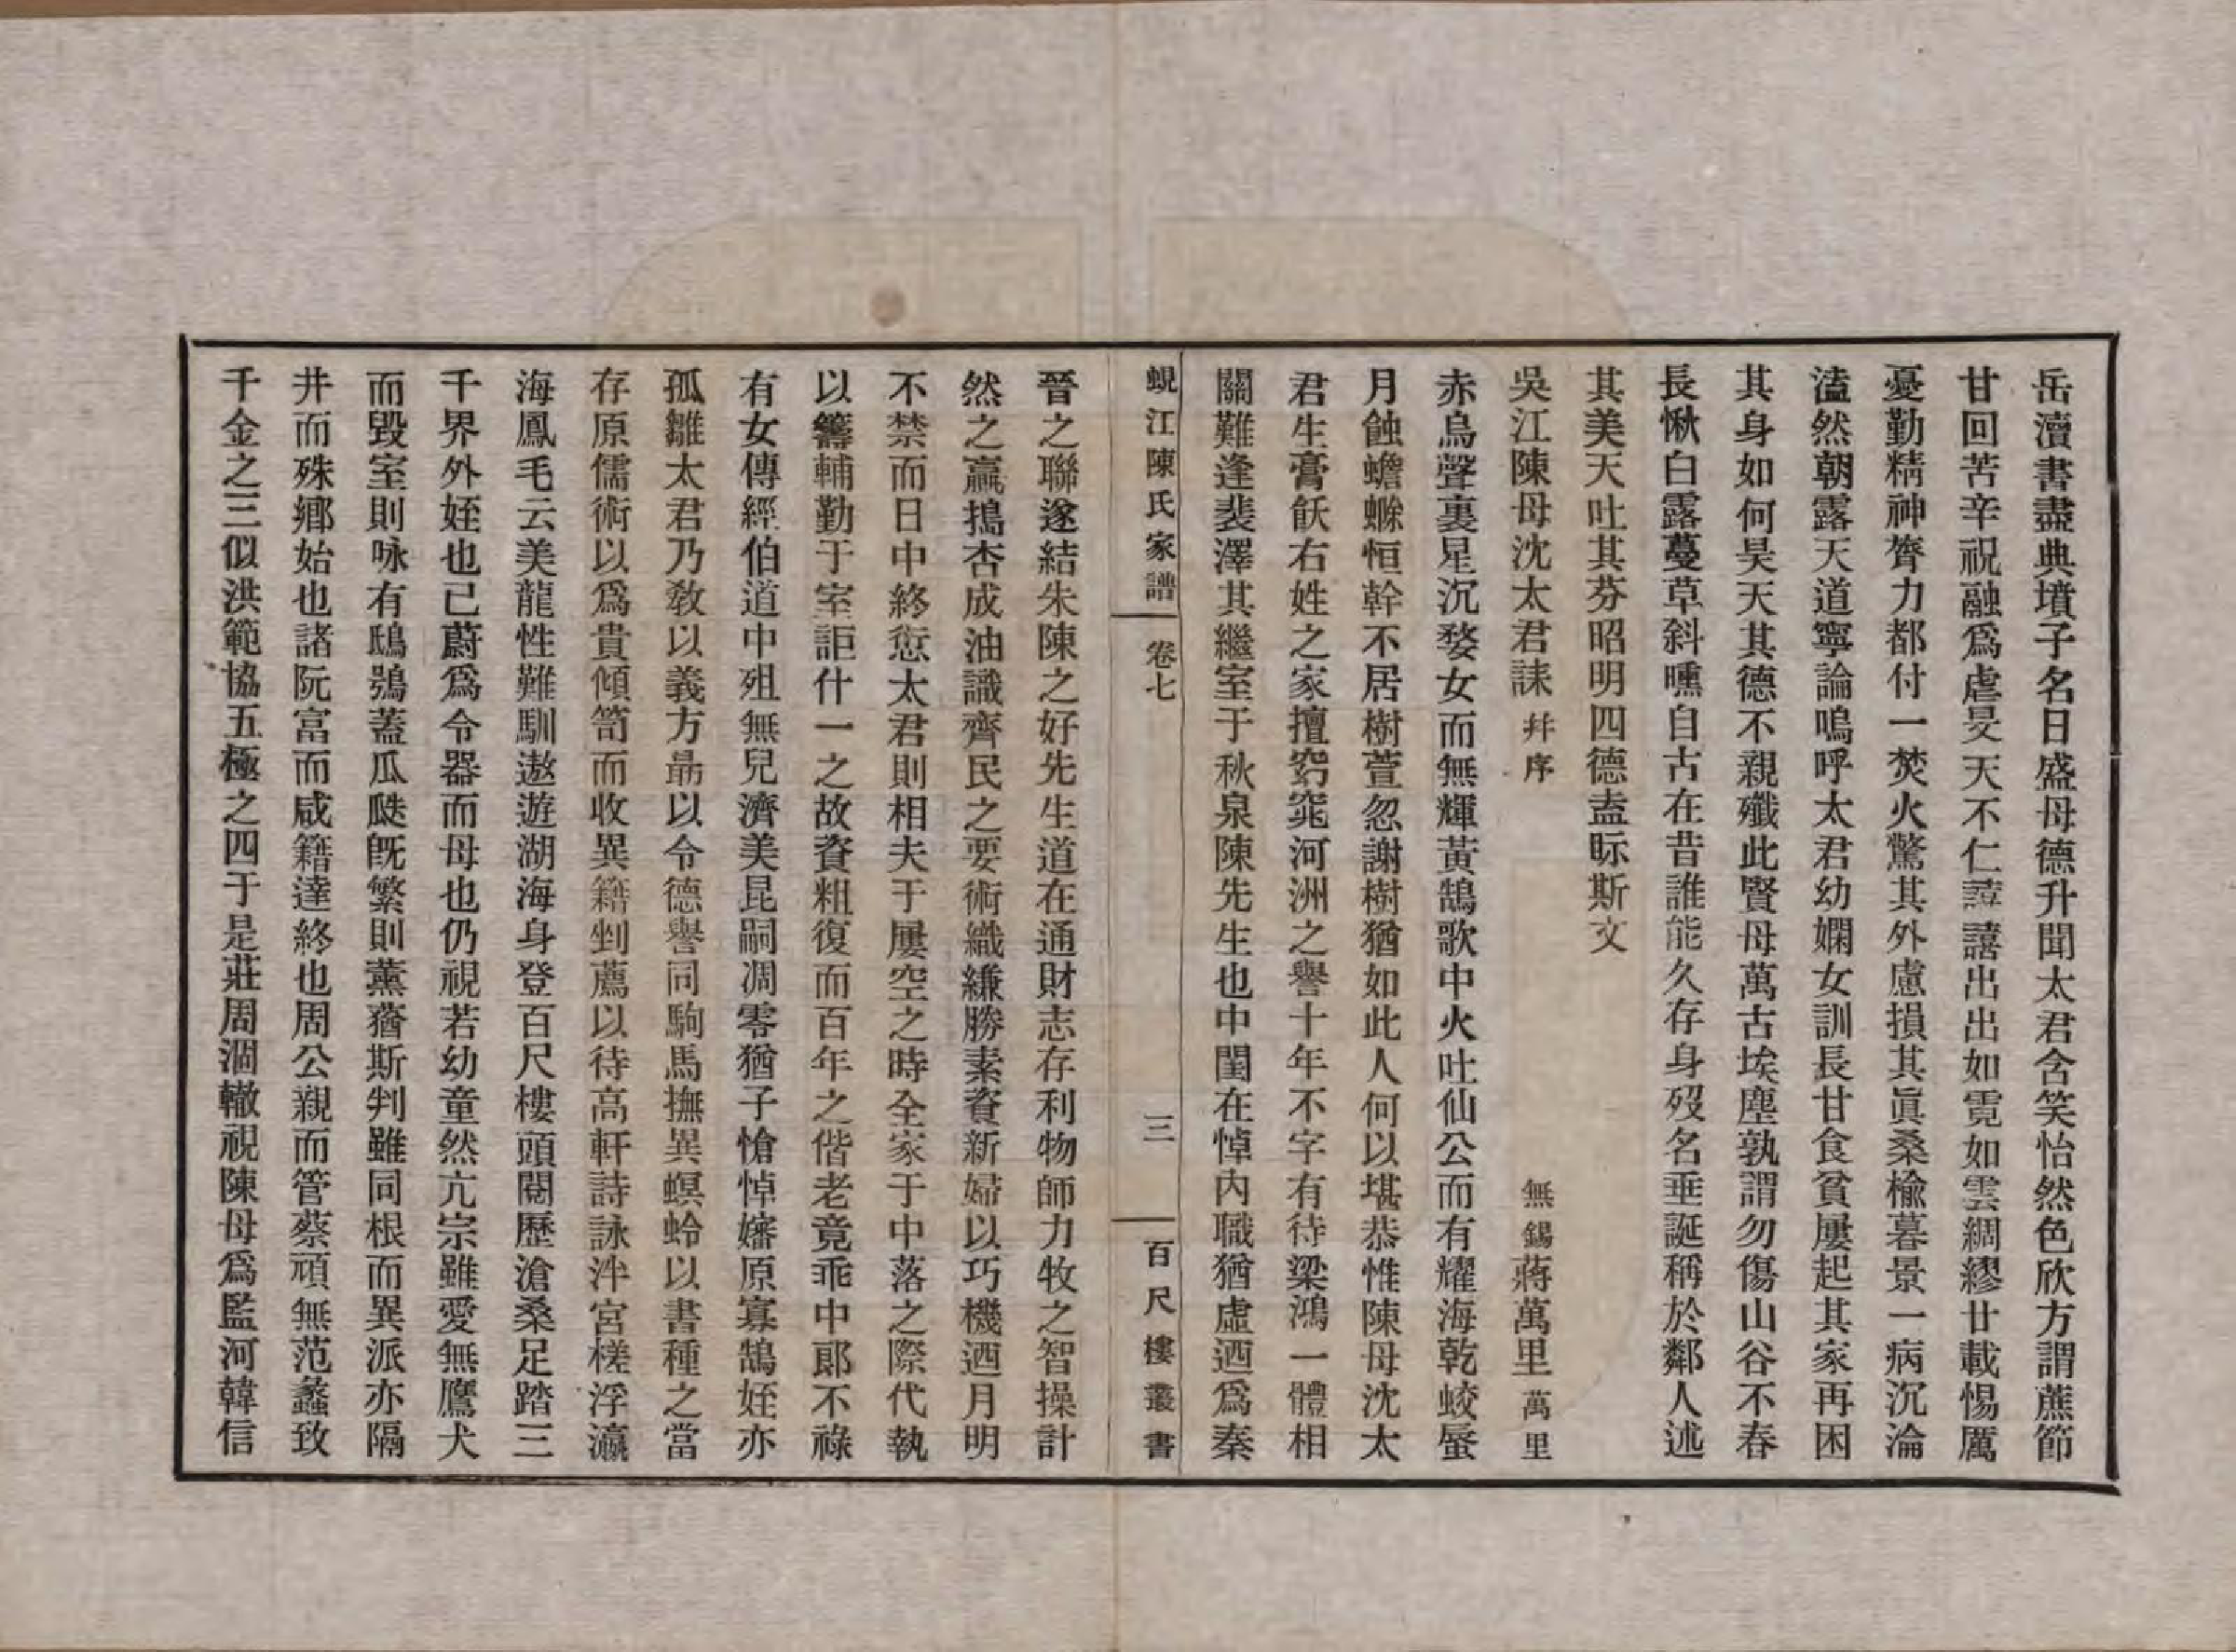 岳瀆書盡典墳子名日盛母德升聞太君含笑怡然色欣方謂蔗節
甘回苦辛祝融爲虐旻天不仁譆譆出出如霓如雲綢繆廿載惕厲
憂勤精神膂力都付一焚火驚其外慮損其眞桑楡暮景一病沉淪
溘然朝露天道寧論嗚呼太君幼嫻女訓長甘食貧屢起其家再困
其身如何昊天其德不親殲此賢母萬古埃塵孰謂勿傷山谷不春
長愀白露蔓草斜曛自古在昔誰能久存身歿名垂誕稱於鄰人述
其美天吐其芬昭明四德盍眎斯文
吳江陳母沈太君誄 幷序 無錫蔣萬里 萬里
赤烏聲裏星沉婺女而無輝黃鵠歌中火吐仙公而有耀海乾蛟蜃
月蝕蟾蜍恒幹不居樹萱忽謝樹猶如此人何以堪恭惟陳母沈太
君生膏飫右姓之家擅窈窕河洲之譽十年不字有待梁鴻一體相
關難逢裴澤其繼室于秋泉陳先生也中閨在悼內職猶虛迺爲秦
蜆江陳氏家譜 卷七 三 百尺樓叢書
晉之聯遂結朱陳之好先生道在通財志存利物師力牧之智操計
然之贏搗杏成油識齊民之要術織縑勝素資新婦以巧機迺月明
不禁而日中終愆太君則相夫于屢空之時全家于中落之際代執
以籌輔勤于室詎什一之故資粗復而百年之偕老竟乖中郞不祿
有女傳經伯道中殂無兒濟美昆嗣凋零猶子愴悼嬸原寡鵠姪亦
孤雛太君乃敎以義方勗以令德譽同駒馬撫異螟蛉以書種之當
存原儒術以爲貴傾笥而收異籍剉薦以待高軒詩詠泮宮槎浮瀛
海鳳毛云美龍性難馴遨遊湖海身登百尺樓頭閱歷滄桑足踏三
千界外姪也已蔚爲令器而母也仍視若幼童然亢宗雖愛無鷹犬
而毀室則咏有鴟鴞蓋瓜瓞旣繁則薰蕕斯判雖同根而異派亦隔
井而殊鄉始也諸阮富而咸籍達終也周公親而管蔡頑無范蠡致
千金之三似洪範協五極之四于是莊周涸轍視陳母爲監河韓信